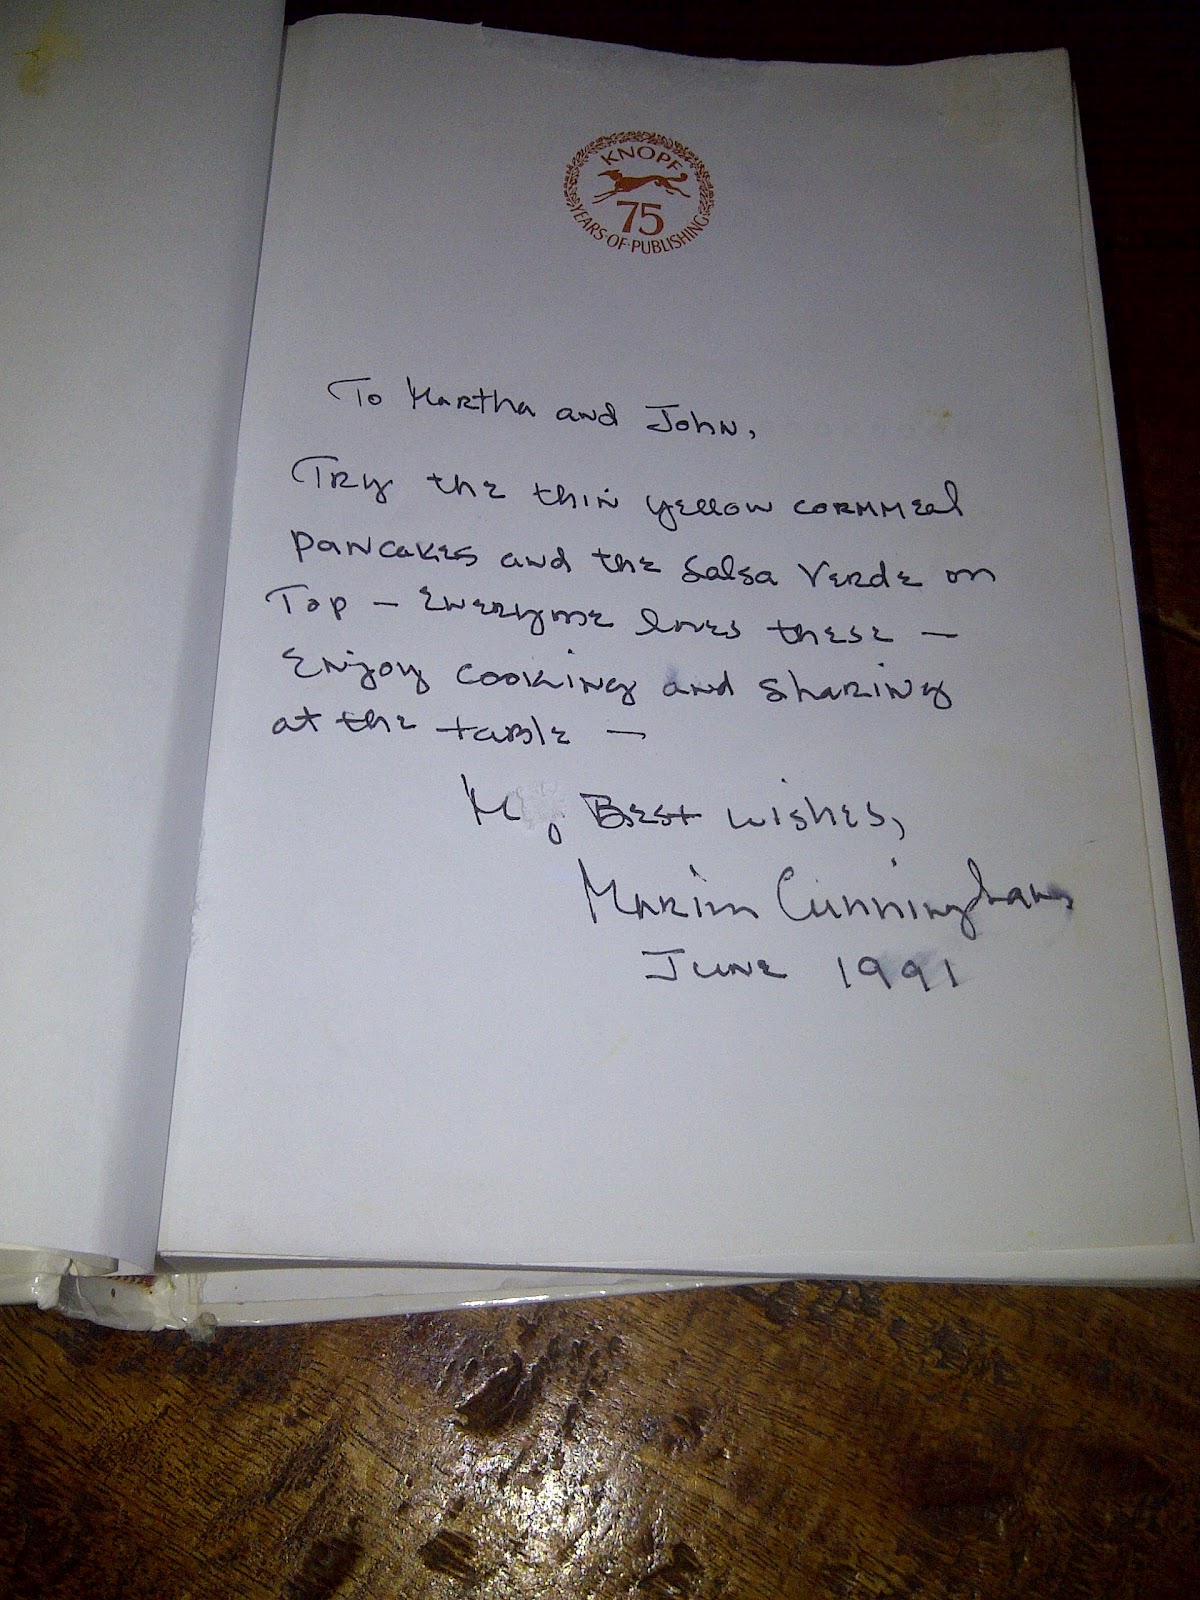 KNOPF
75
YEARS·OF·PUBLISHING
To Martha and John,
Try the thin yellow cornmeal
pancakes and the Salsa Verde on
Top — Everyone loves these —
Enjoy cooking and sharing
at the table —
Best wishes,
Marion Cunningham
June 1991